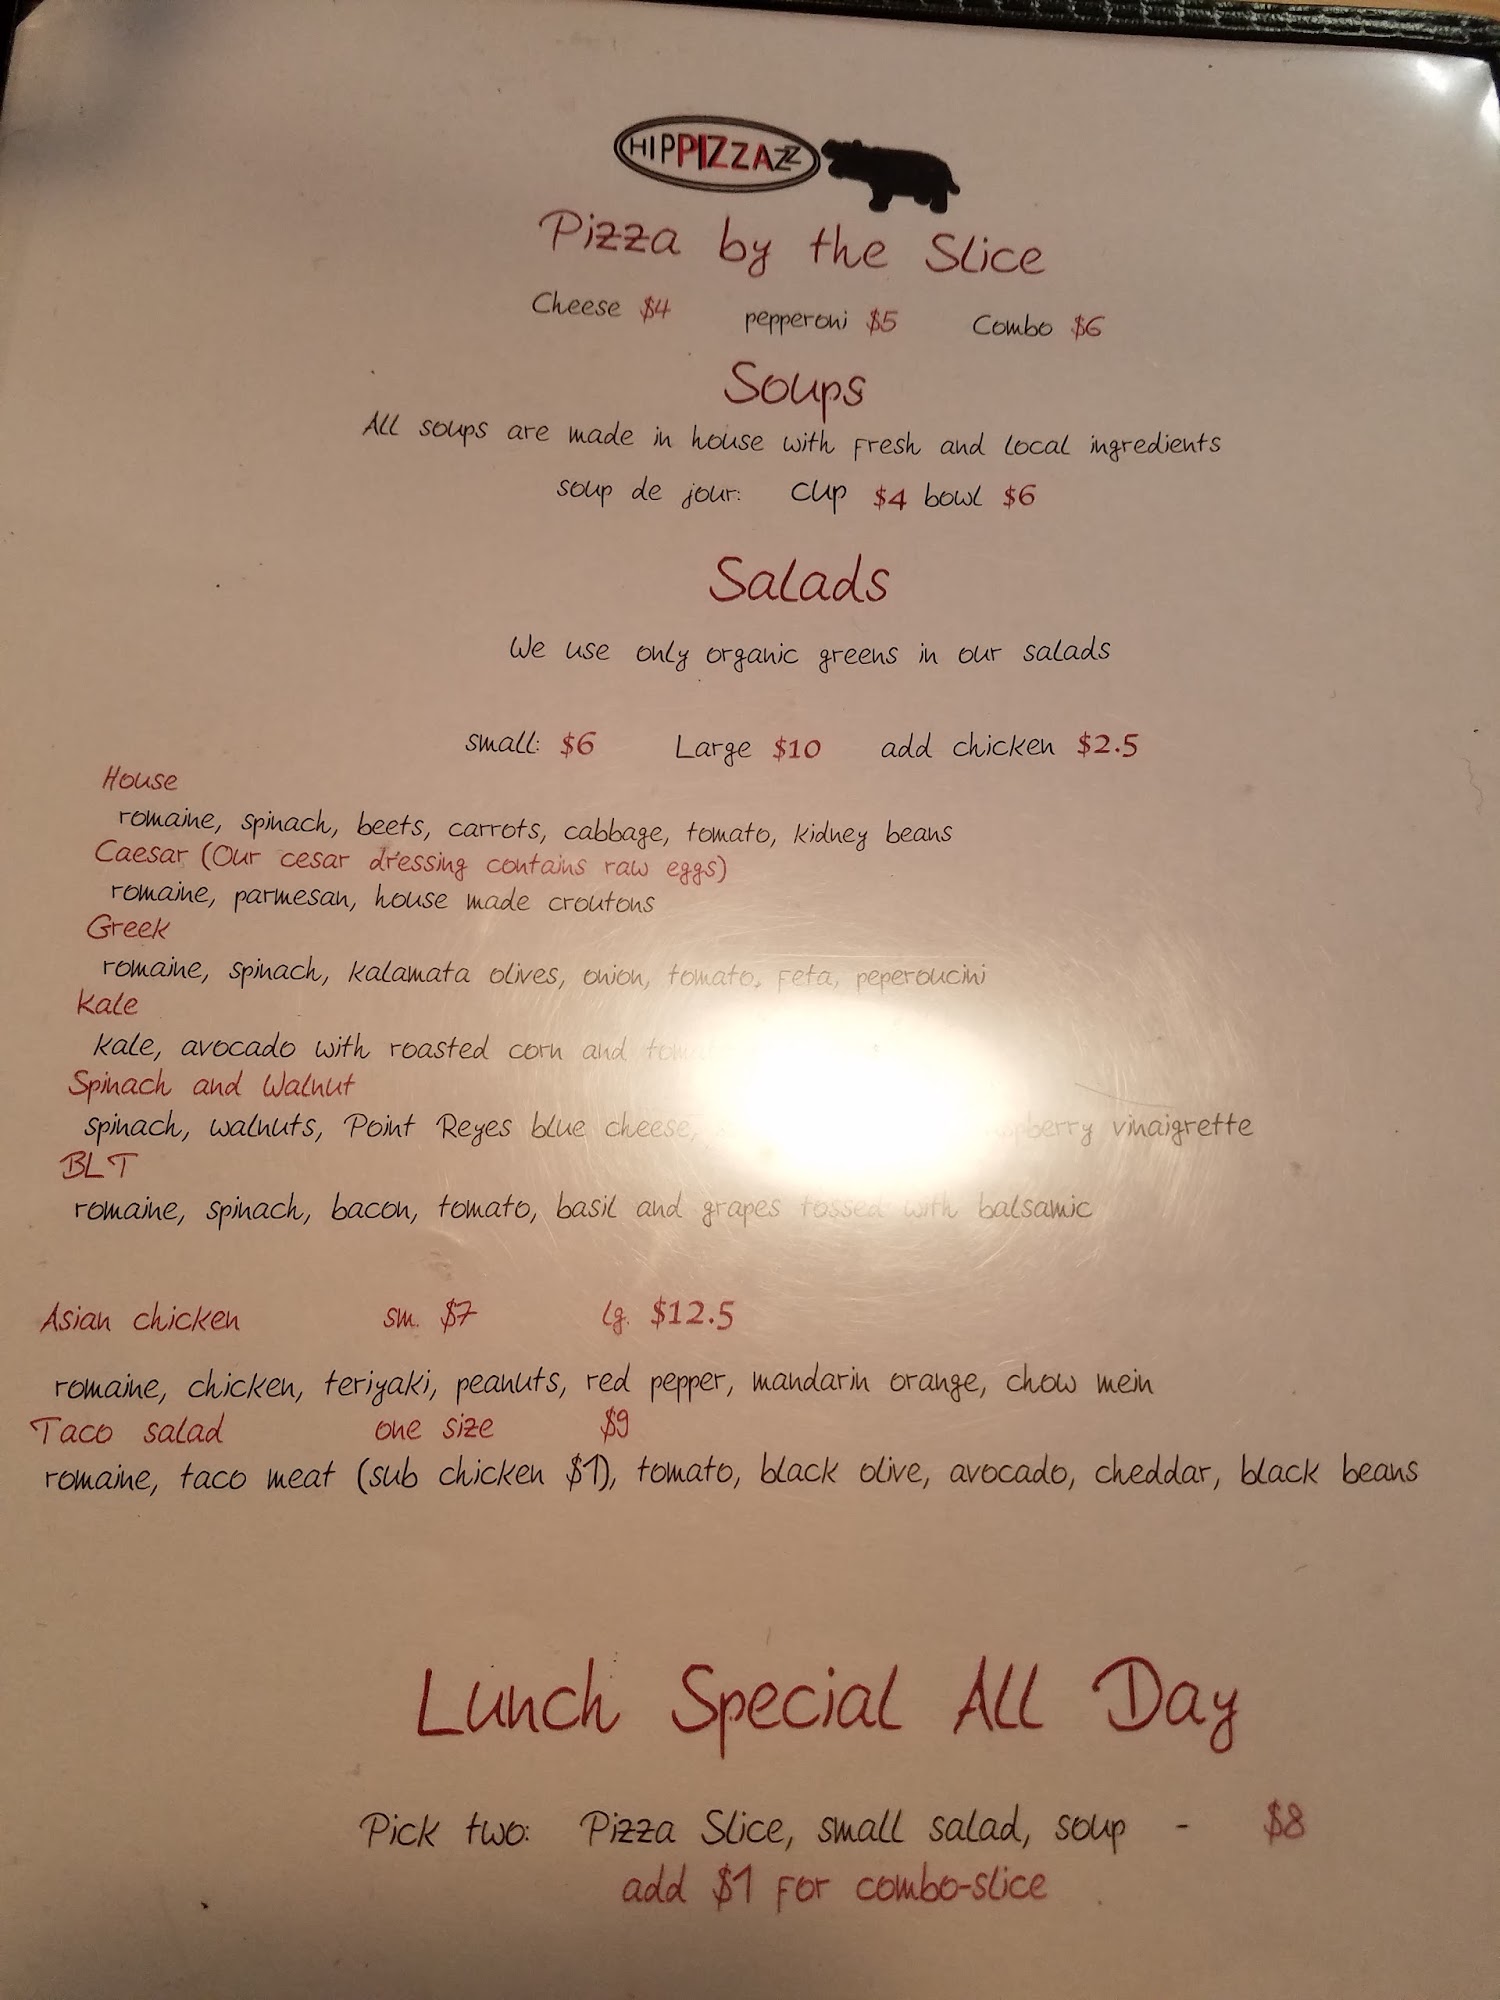 HIPPIZZAZZ
Pizza by the Slice
Cheese $4 pepperoni $5 Combo $6
Soups
All soups are made in house with fresh and local ingredients
soup de jour: cup $4 bowl $6
Salads
We use only organic greens in our salads
small: $6 Large $10 add chicken $2.5
House
romaine, spinach, beets, carrots, cabbage, tomato, kidney beans
Caesar (Our cesar dressing contains raw eggs)
romaine, parmesan, house made croutons
Greek
romaine, spinach, kalamata olives, onion, tomato, feta, peperoucini
Kale
kale, avocado with roasted corn and
Spinach and Walnut
spinach, walnuts, Point Reyes blue cheese, vinaigrette
BLT
romaine, spinach, bacon, tomato, basil and grapes tossed with balsamic
Asian chicken sm. $7 lg. $12.5
romaine, chicken, teriyaki, peanuts, red pepper, mandarin orange, chow mein
Taco salad one size $9
romaine, taco meat (sub chicken $1), tomato, black olive, avocado, cheddar, black beans
Lunch Special All Day
Pick two: Pizza Slice, small salad, soup - $8
add $1 for combo-slice